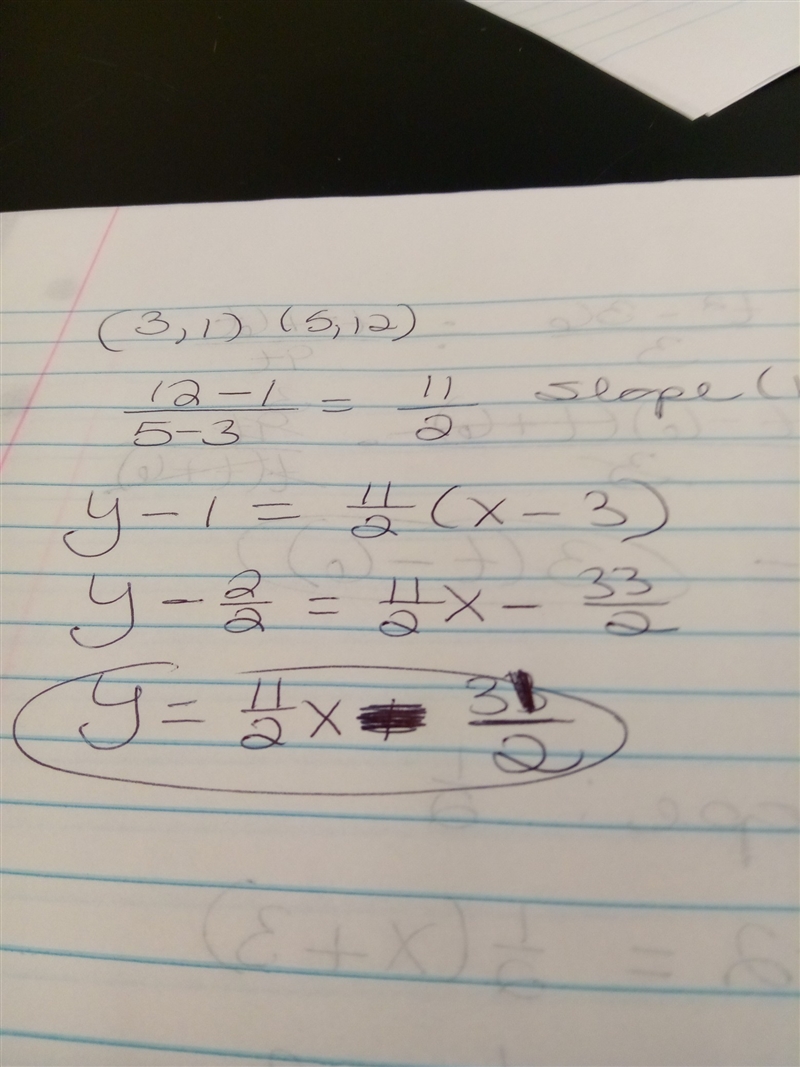 (3,1) (5,12)
12-1/5-3 = 11/2 slope(
y-1 = 11/2 (x-3)
y - 2/2 = 11/2 x - 33/2
y = 11/2 x - 31/2